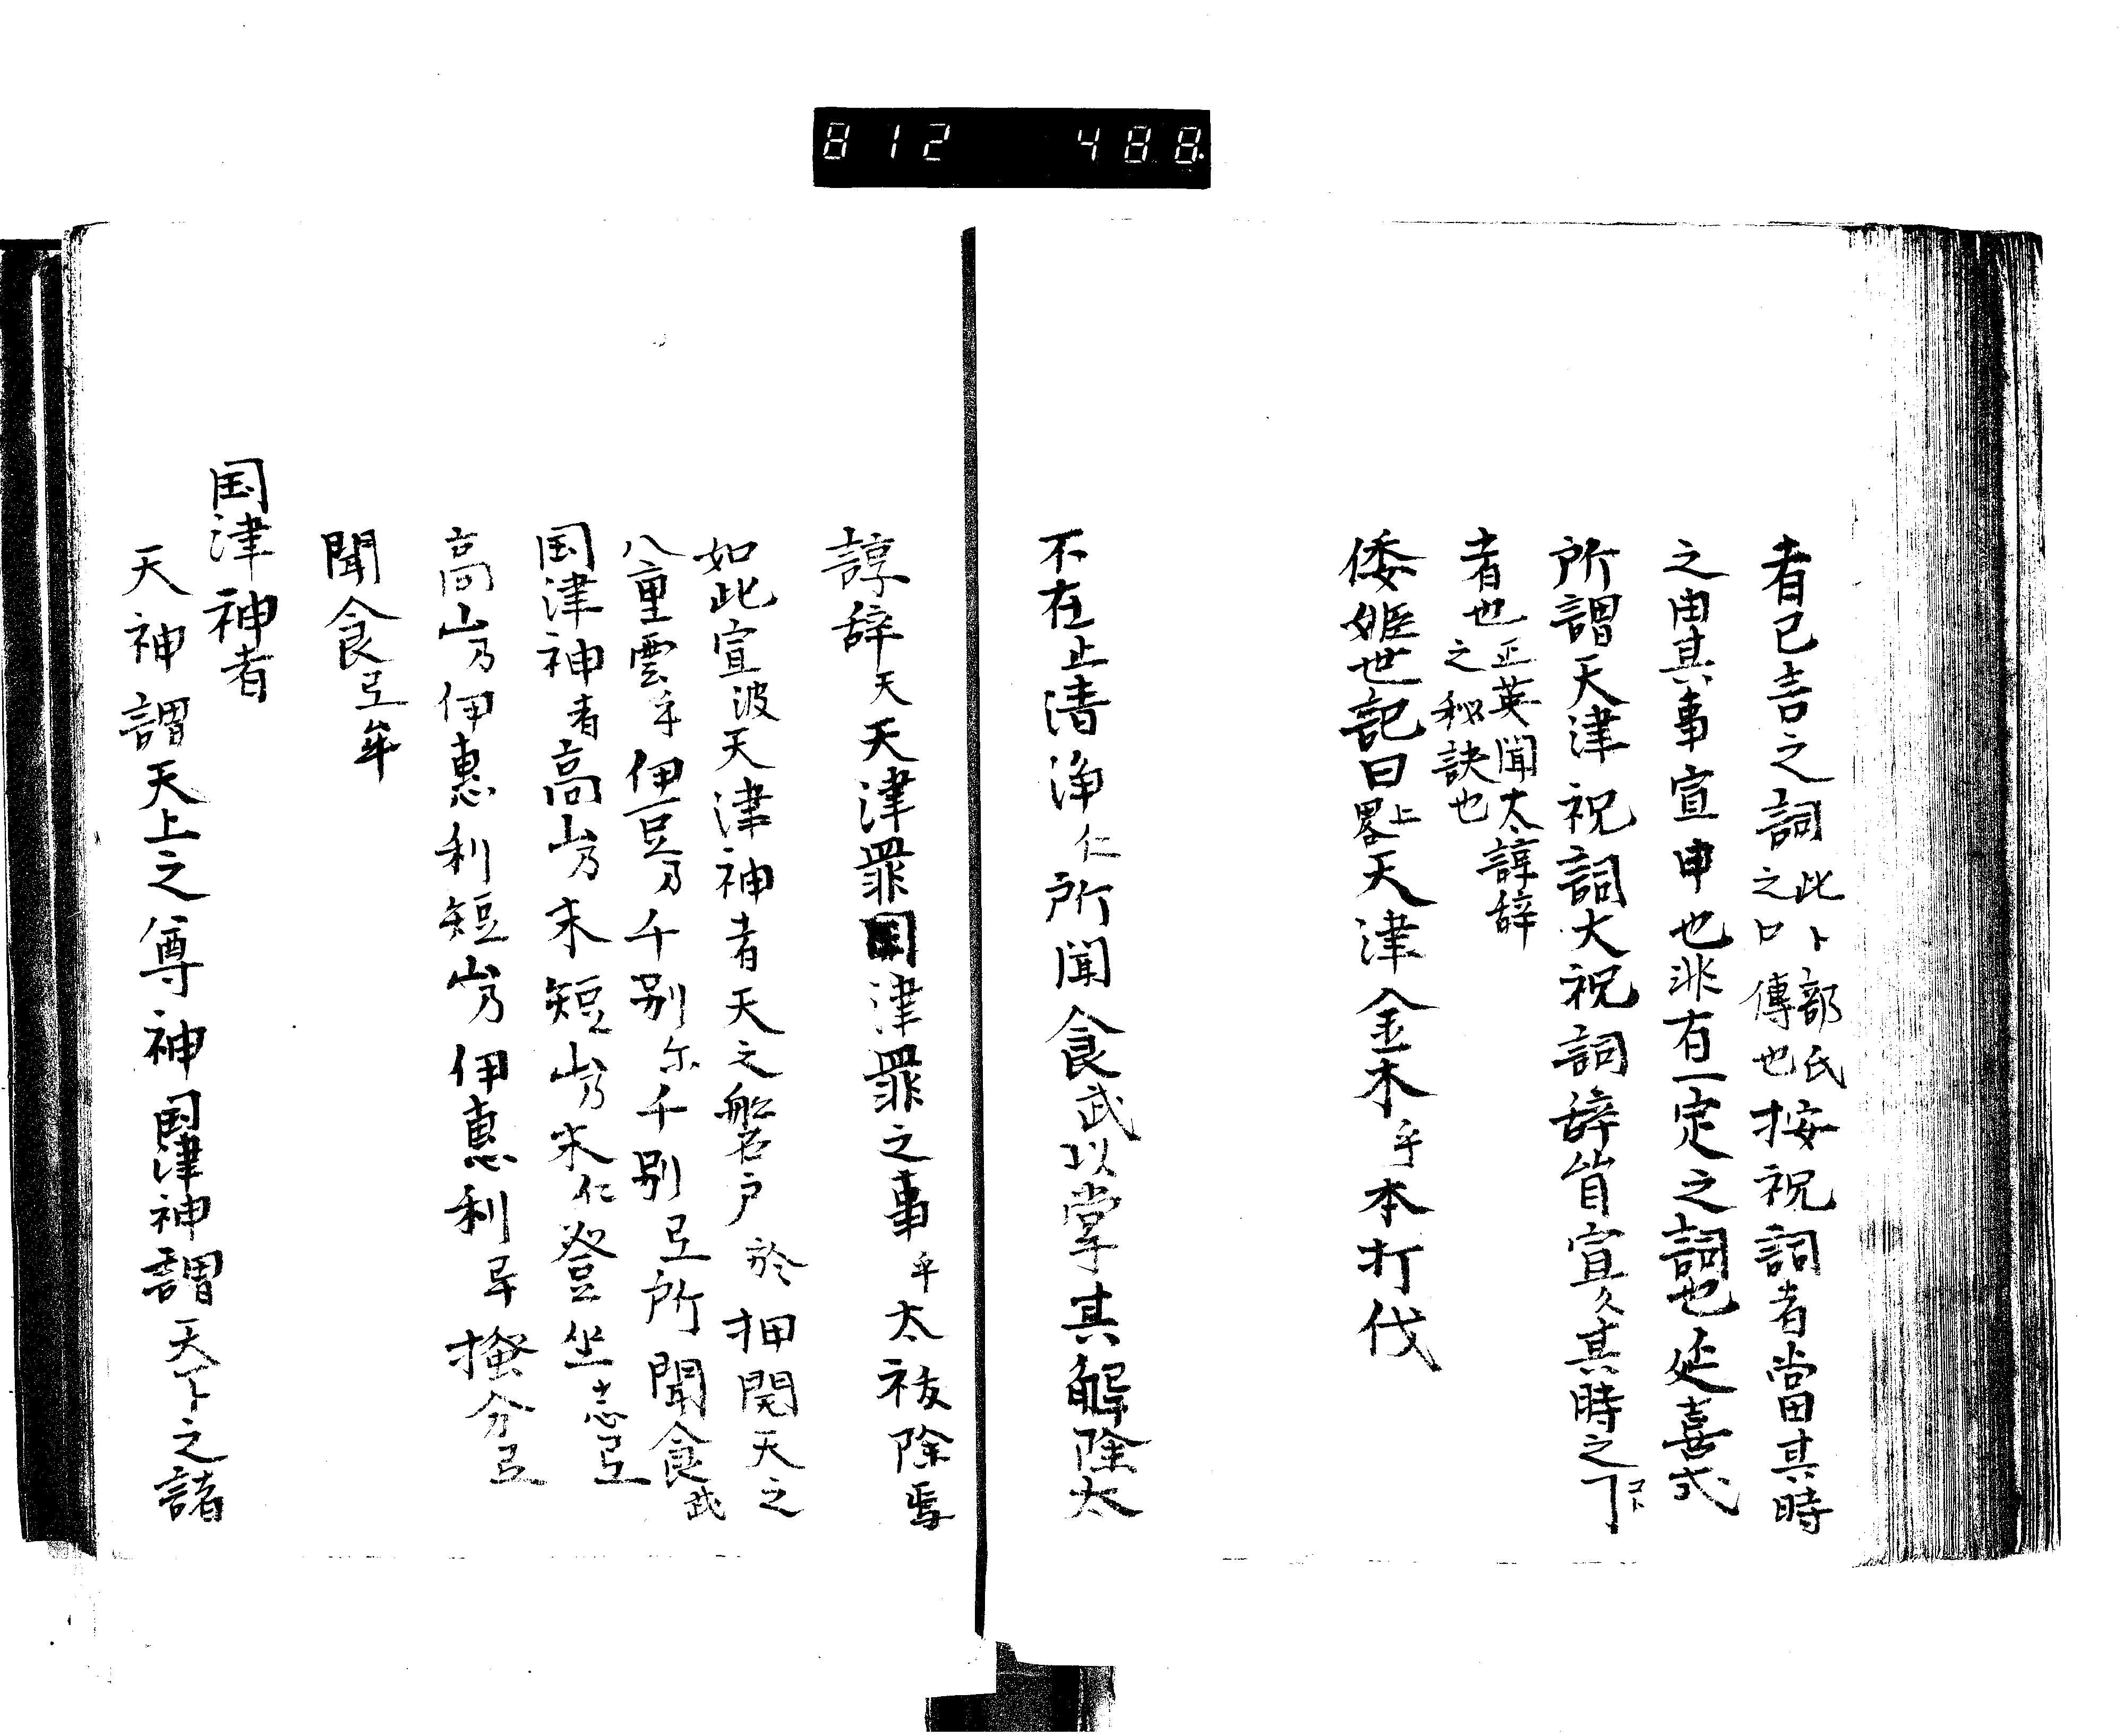 812 488
者已言之詞 此卜部氏之口傳也 按祝詞者當其時
之由其事宣申也非有一定之詞也延喜式
所謂天津祝詞大祝詞辞皆宣其時之
者也 正英聞太諄辞之秘訣也
倭姫世記曰 上畧 天津金木乎本打伐
不在止清浄仁所聞食武以掌其解除太
諄辞天天津罪国津罪之事乎太祓除焉
如此宣波天津神者天之磐戸於押開天之
八重雲乎伊豆乃千別尓千別弖所聞食武
国津神者高山乃末短山乃末仁登坐志弖
高山乃伊恵利短山乃伊恵利乎撥分弖
聞食弖牟
国津神者
天神謂天上之尊神国津神謂天下之諸